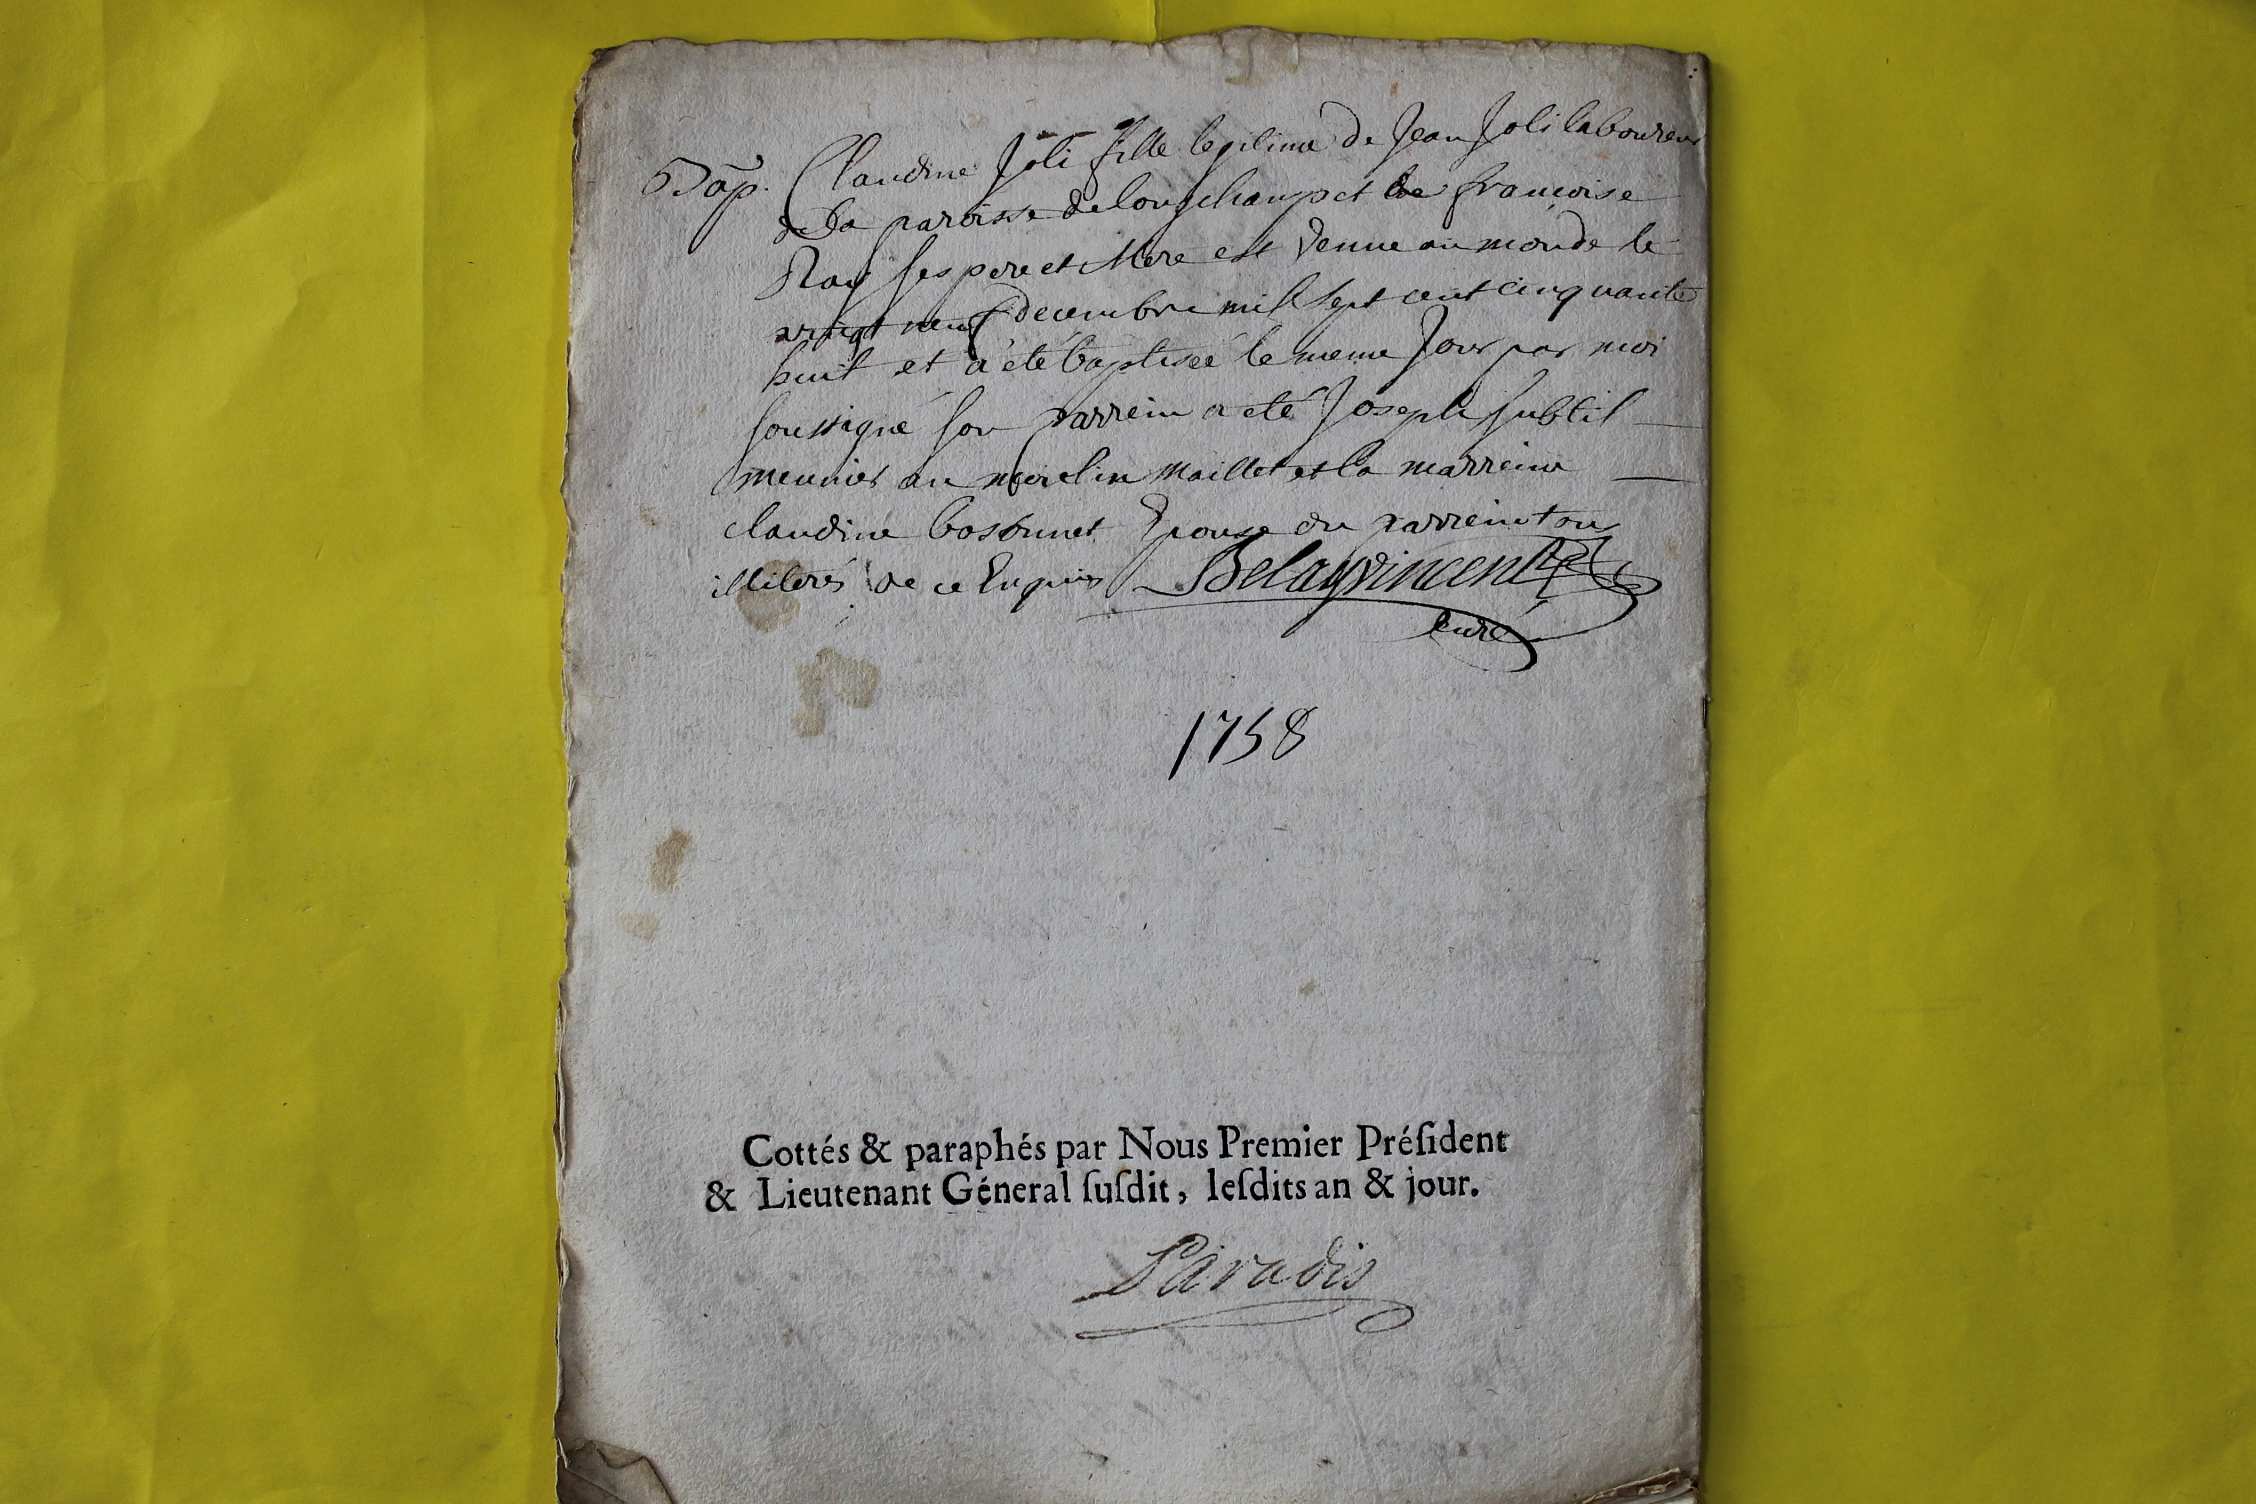 Bap. Claudine Joli fille legitime de Jean Joli laboureur
de la paroisse de longchamp et de françoise
Ray ses pere et Mere est venue au monde le
vingt neuf decembre mil sept cent cinquante
huit et a été baptisée le meme Jour par moi
soussigné son parrein a été Joseph subtil
meunier au moulin maillet et la marreine
claudine Epouse du parrein tous
illiterés de ce Enquis Belayvincent
curé
1758
Cottés & paraphés par Nous Premier Préſident
& Lieutenant Géneral ſuſdit, leſdits an & jour.
Paradis